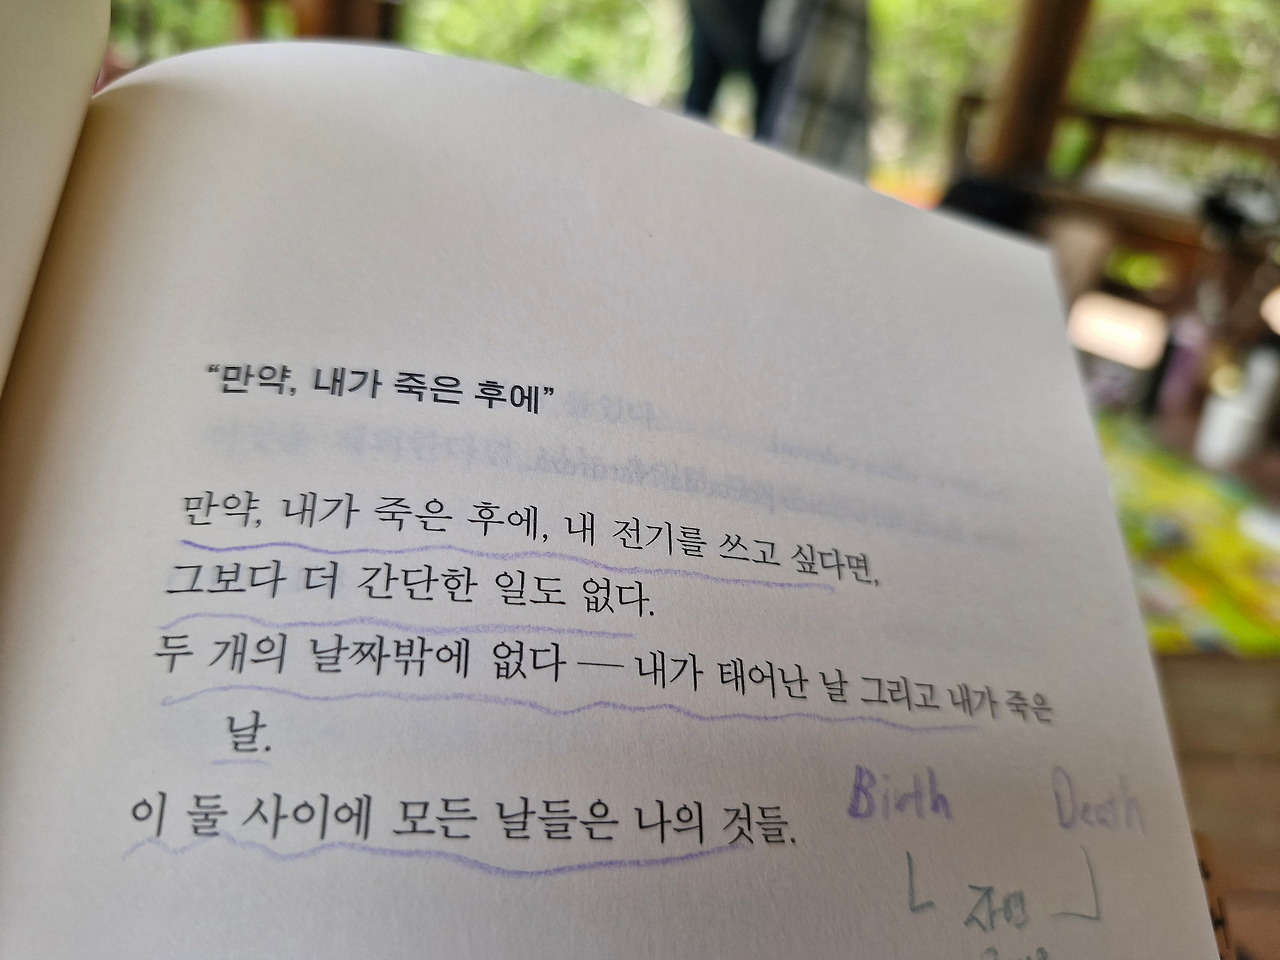 “만약, 내가 죽은 후에”
만약, 내가 죽은 후에, 내 전기를 쓰고 싶다면,
그보다 더 간단한 일도 없다.
두 개의 날짜밖에 없다 — 내가 태어난 날 그리고 내가 죽은
날.
이 둘 사이에 모든 날들은 나의 것들.
Birth Death
자연